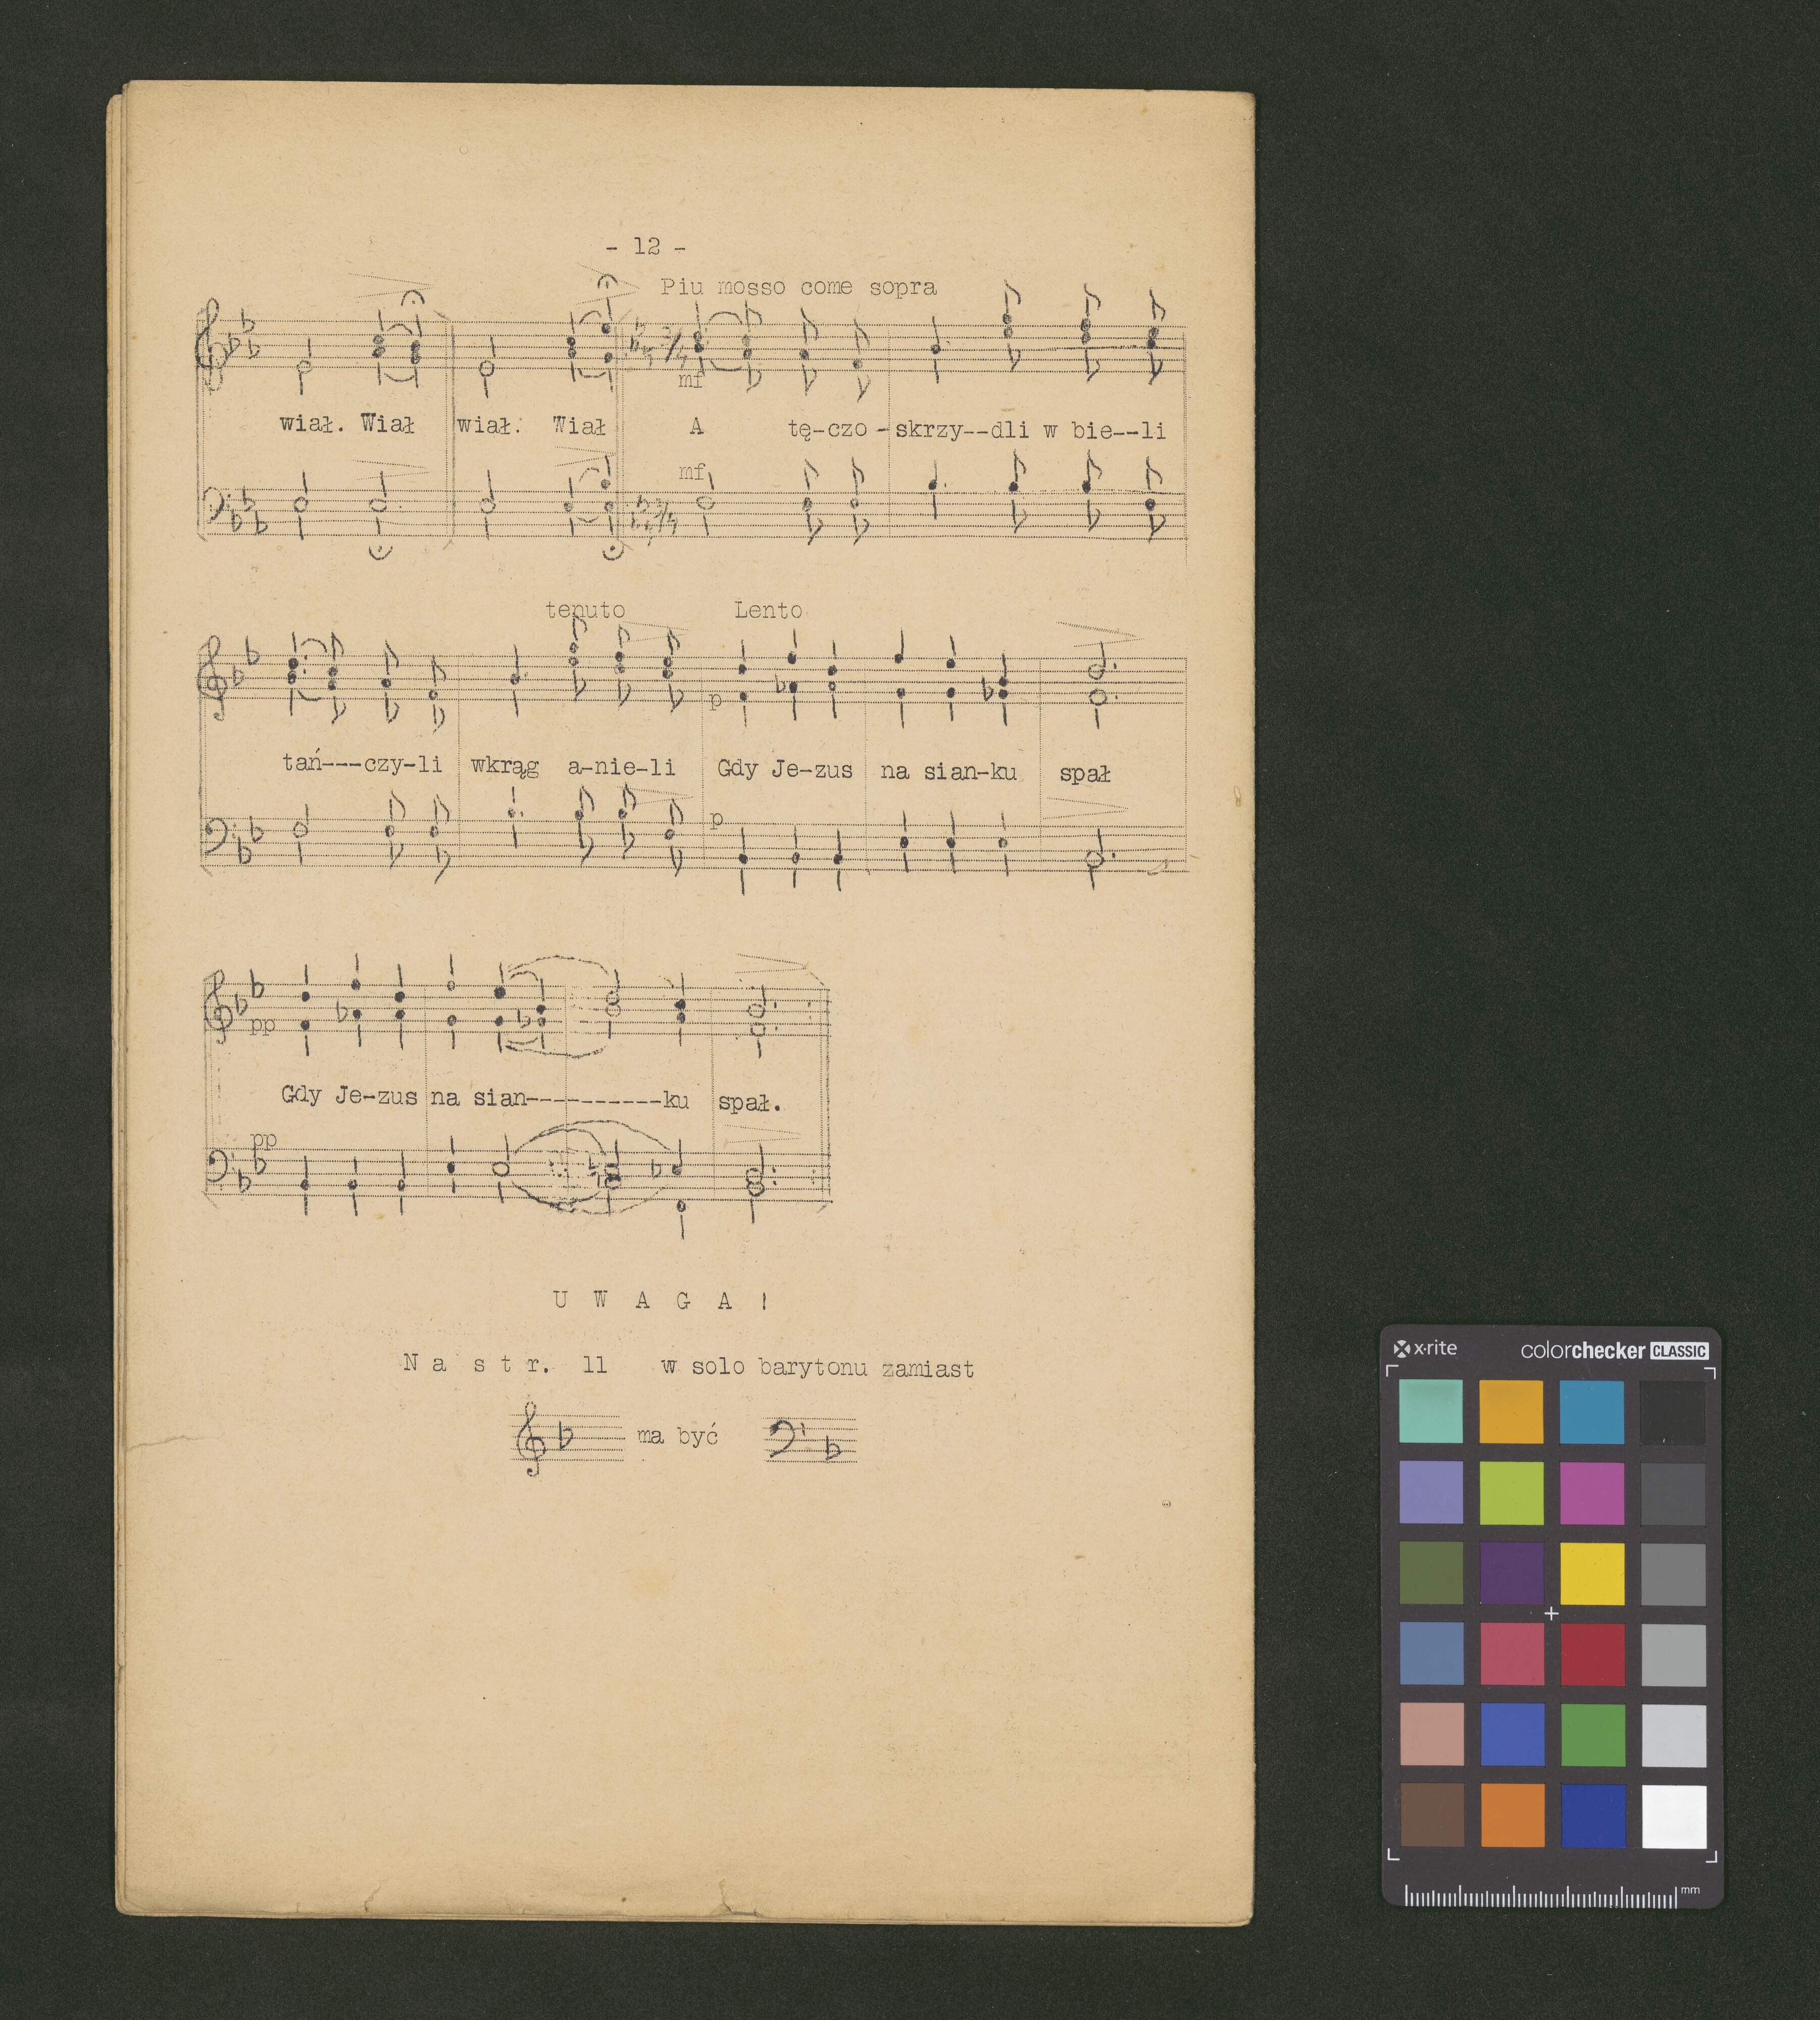 - 12 -
Piu mosso come sopra
mf
wiał. Wiał wiał. Wiał A tę-czo-skrzy--dli w bie--li
mf
tenuto Lento
p
tań---czy-li wkrąg a-nie-li Gdy Je-zus na sian-ku spał
p
pp
Gdy Je-zus na sian----------ku spał.
pp
U W A G A !
N a s t r. 11 w solo barytonu zamiast
ma być
x-rite colorchecker CLASSIC
mm